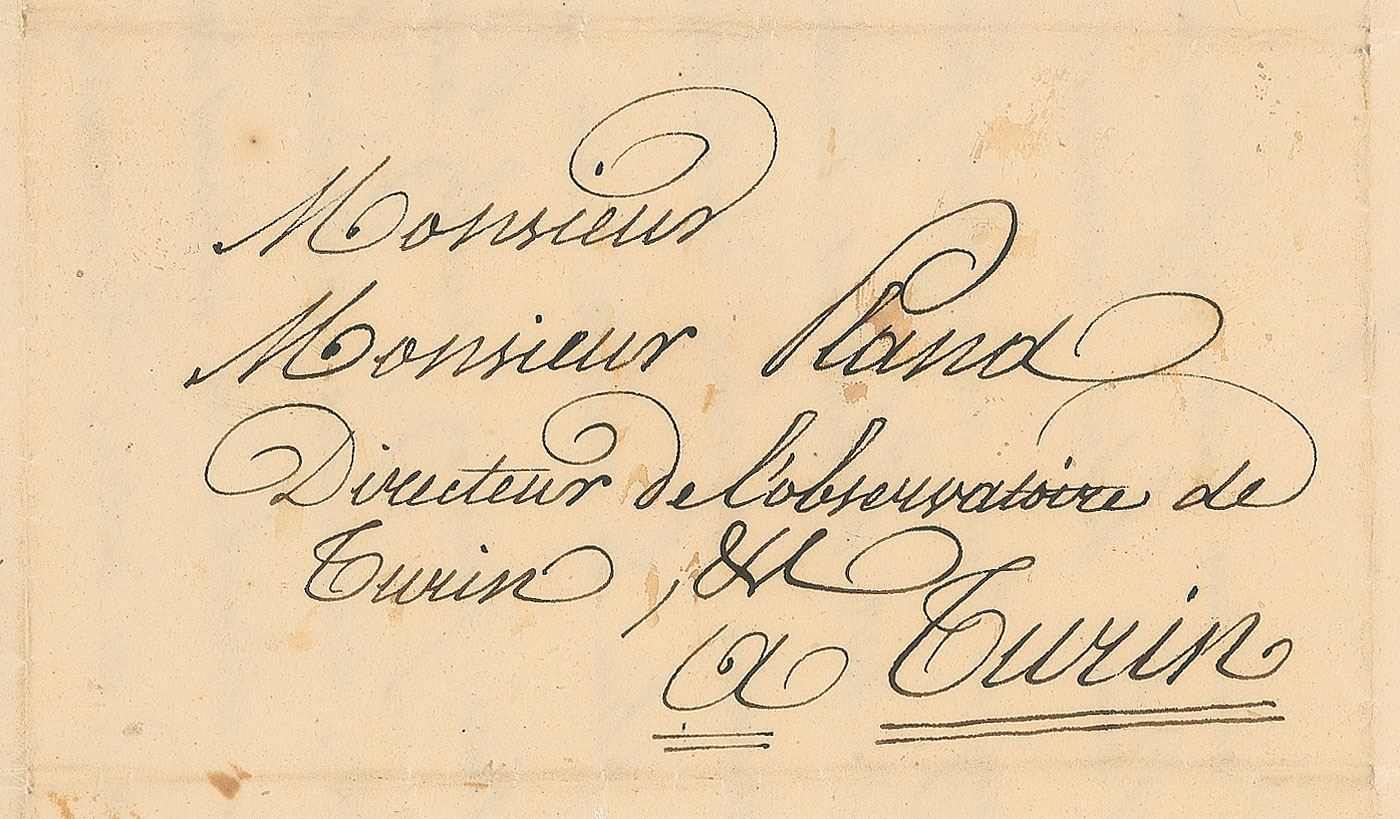 Monsieur
Monsieur Plana
Directeur de l'observatoire de
Turin, &c
a Turin